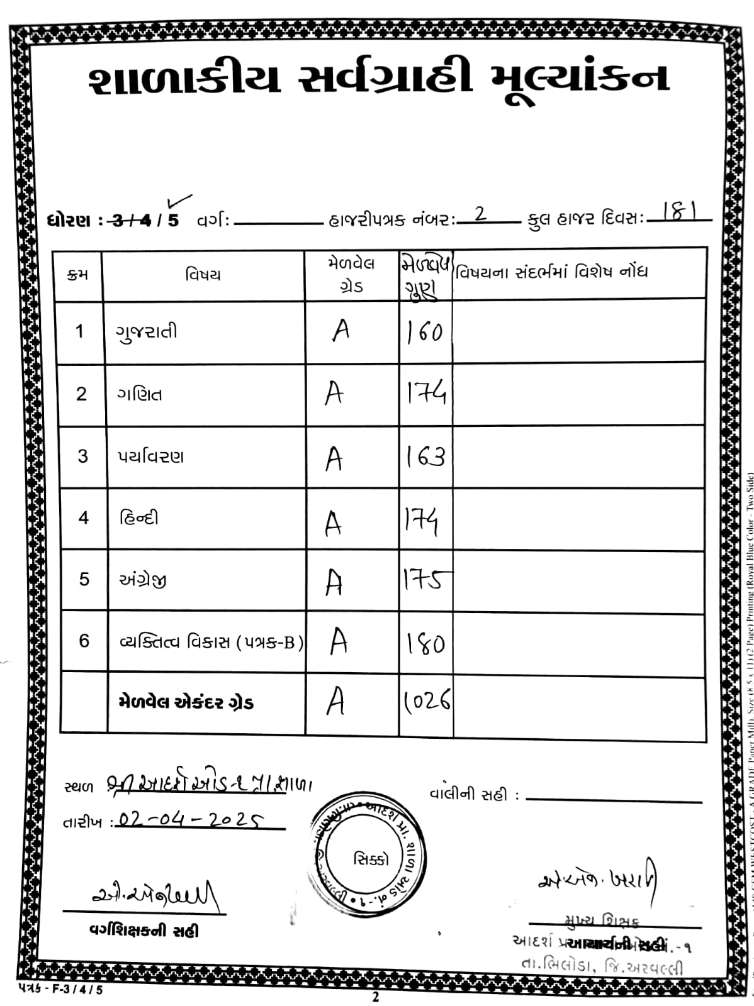 શાળાકીય સર્વગ્રાહી મૂલ્યાંકન
ધોરણ : 3 / 4 / 5 વર્ગ: હાજરીપત્રક નંબર: 2 કુલ હાજર દિવસ: 181
ક્રમ વિષય મેળવેલ ગ્રેડ મેળવેલ ગુણ વિષયના સંદર્ભમાં વિશેષ નોંધ
1 ગુજરાતી A 160
2 ગણિત A 174
3 પર્યાવરણ A 163
4 હિન્દી A 174
5 અંગ્રેજી A 175
6 વ્યક્તિત્વ વિકાસ (પત્રક-B) A 180
મેળવેલ એકંદર ગ્રેડ A 1026
સ્થળ શ્રી આદર્શ
વાલીની સહી :
તારીખ : 02-04-2025
સિક્કો
વર્ગશિક્ષકની સહી
મુખ્ય શિક્ષક
આચાર્યની સહી
તા.ભિલોડા, જિ.અરવલ્લી
પત્રક - F-3 / 4 / 5
2